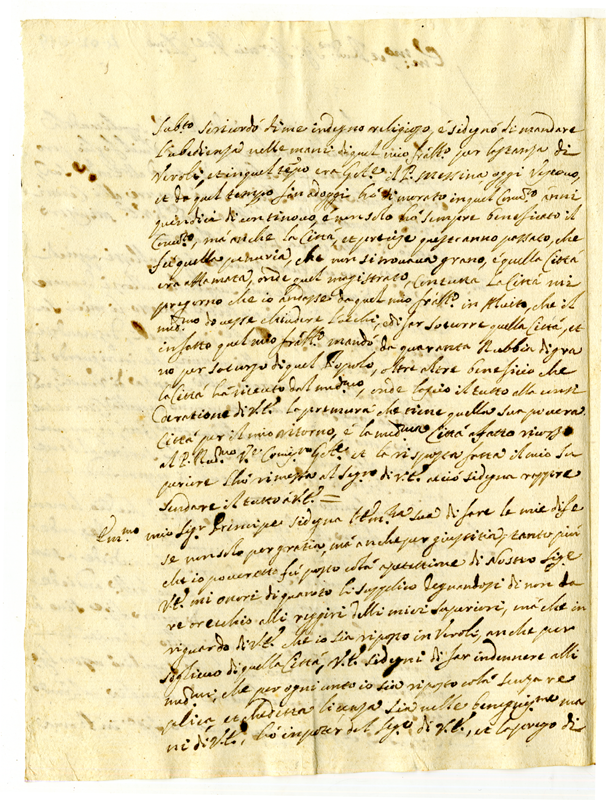 Sub.to si ricordò di me indegno religioso, e si degnò di mandare
l'obedienza nelle mani di quel mio frãll.o per la stanza di
Veroli, et in quel tẽpo era Gñle il P. Messina oggi Vescovo,
et da quel tempo sin ad oggi hò dimorato in quel Conv.to anni
quindici di continovo, e non solo hò sempre beneficato il
Conv.to, mà anche la Città, et precise quest'anno passato, che
fù quella penuria, che non si trovava grano, e quella Città
era affamata, onde quel magistrato, con tutta la Città mi
pregorno che io andasse da quel mio frãll.o in che il
med.mo dovesse chiudere l'occhi, e di far soccurre quella Città, et
in fatto quel mio frãll.o mandò da quaranta Rubbia di gra
no per soccurzo di quel Popolo, oltre altre beneficio che
la Città hà ricevto dal med.mo, onde lascio il tutto alla consi
deratione di V.E. la premura che tiene quella sua povera
Città per il mio ritorno, è la med.ma Città à fatto ricorso
al P. Rud.mo P. Com.rio Gñle et la risposta fatta il mio Su
periore l'hò rimessa al Seg.rio di V.E. acciò si degna rappre
sendare il tutto à V.E. =
Em.mo mio Sig.r Principe si degna l'Em.za Sua di fare le mie dife
se non solo per gratia, mà anche per giustitia, tanto più
che io poveretto fui posto colà a petittione di Nostro Sig.re
V.E. mi onori di quanto la supplico degnandosi di non da
re orecchio alli reggiri delli miei Superiori, mà che in
riguardo di V.E. che io sia riposto in Veroli, anche per
sollievo di quella Città, V.E. si degni di far indennere alli
med.mi, che per ogni conto io sia riposto colà senza re
plica, et che detta licenza sia nelle benegnis.me ma
ni di V.E., ò in poter del Seg.rio di V.E., et la prego di